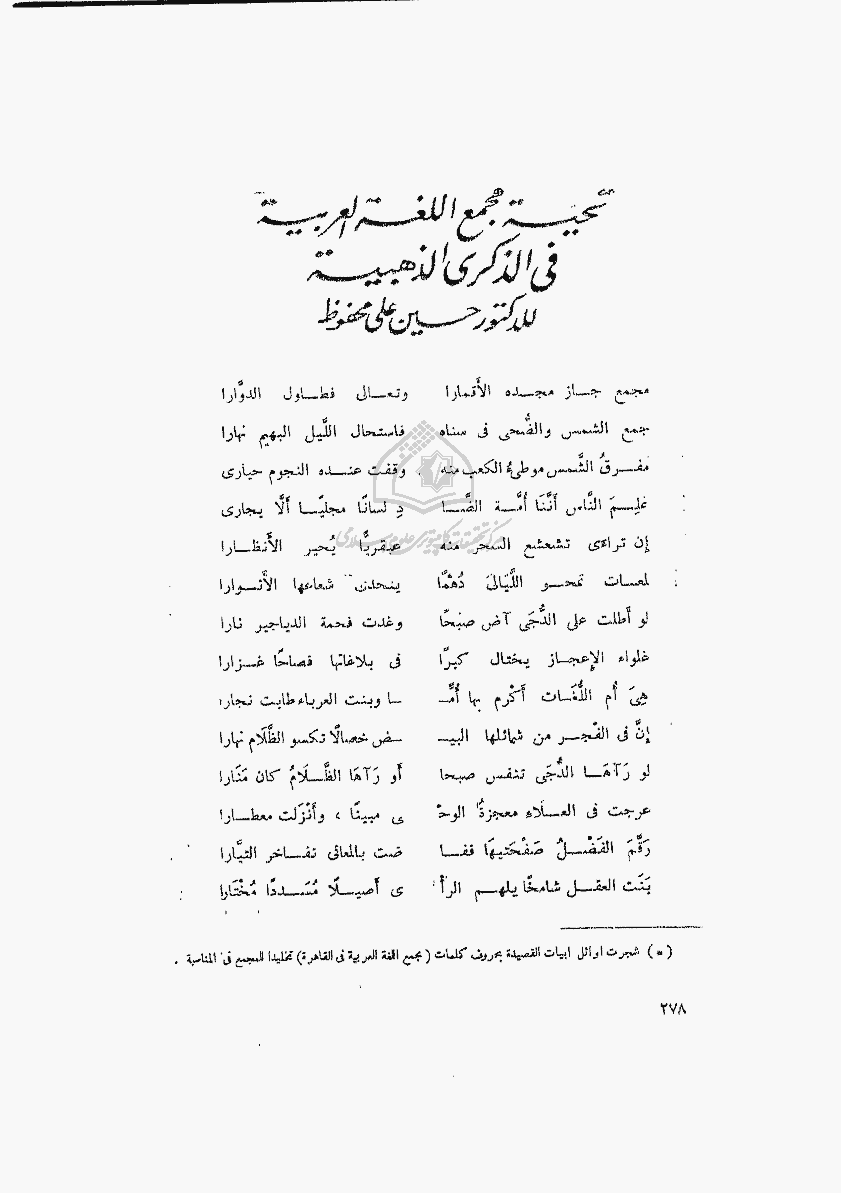 تحية مجمع اللغة العربية
فى الذكرى الذهبية
للدكتور حسين على محفوظ
مجمع جـاز مجـده الأقمارا وتعـالى فطـاول الدوَّارا
جمع الشمس والضُّحى فى سناه فاستحال اللَّيل البهيم نهارا
مفـرقُ الشَّمس موطئُ الكعب منه وقفت عنـده النجوم حيارى
علِـمَ النَّاس أنَّنَا أُمَّـة الضَّـا دِ لسانًا مجليًـا ألَّا يجارى
إن تراءى تشعشع السحر منه عبقريًّا يُحير الأنظـارا
لمسات تمحـو اللَّيالىَ دُهْمًا يتحدى شعاعها الأنـوارا
لو أطلت على الدُّجَى آض صبحًا وغدت فحمة الدياجير نارا
غلواء الإعجـاز يختال كبرًا فى بلاغاتها فصاحًا غـزارا
هِىَ أُم اللُّغَـات أكْرم بها أُمًّـ ـا وبنت العرباء طابت نجارا
إنَّ فى الفْجـر من شمائلها البيـ ـض خصالًا تكسو الظَّلَام نهارا
لو رَآهَـا الدُّجَى تنفس صبحا أو رَآهَا الظَّـلَامُ كان مَنَارا
عرجت فى العـلَاءِ معجزةُ الوحْـ ى مبينًا ، وأنْزَلت معطـارا
رَقَّمَ الفَضْـلُ صَفْحَتيهَا ففـا ضت بالمعانى تفـاخر التيَّارا
بَنَت العقـل شامخًا يلهـم الرأ ى أصيـلًا مُسَـددًا مُخْتَارا
(*) شجرت اوائل ابيات القصيدة بحروف كلمات (مجمع اللغة العربية فى القاهرة) تخليدا للمجمع فى المناسبة .
٢٧٨
مركز تحقيقات كامپيوترى علوم اسلامى